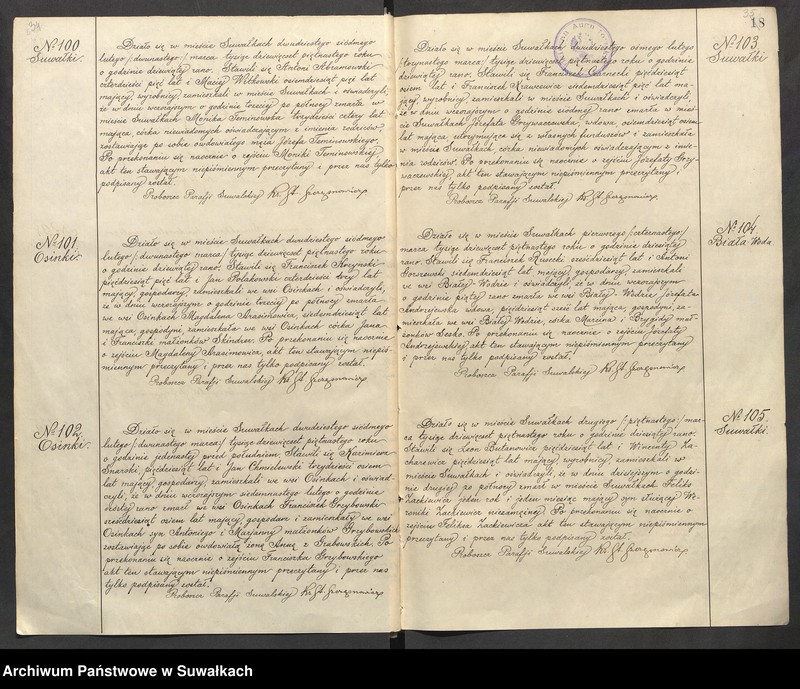 18
№ 100
Suwałki.
Działo się w mieście Suwałkach dwudziestego siódmego
lutego /:dwunastego:/ marca tysiąc dziewięćset piętnastego roku
o godzinie dziewiątej rano. Stawili się Antoni Abramowski
czterdzieści pięć lat i Maciej Witkowski osiemdziesiąt pięć lat
mający, wyrobnicy, zamieszkali w mieście Suwałkach i oświadczyli,
że w dniu wczorajszym o godzinie trzeciej po północy zmarła w
mieście Suwałkach Monika Teminowska trzydzieści cztery lat
mająca, córka niewiadomych oświadczającym z imienia rodziców,
zostawiając po sobie owdowiałego męża Józefa Teminowskiego.
Po przekonaniu się naocznie o zejściu Moniki Teminowskiej
akt ten stawającym niepiśmiennym przeczytany i przez nas tylko
podpisany został.
Proboszcz Parafji Suwalskiej Ks. St.
№ 101
Osinki.
Działo się w mieście Suwałkach dwudziestego siódmego
lutego /:dwunastego marca:/ tysiąc dziewięćset piętnastego roku
o godzinie dziewiątej rano. Stawili się Franciszek
pięćdziesiąt pięć lat i Jan Polakowski czterdzieści trzy lat
mający, gospodarze, zamieszkali we wsi Osinkach i oświadczyli,
że w dniu wczorajszym o godzinie trzeciej po północy zmarła
we wsi Osinkach Magdalena Krasimowicz, siedemdziesiąt lat
mająca, gospodyni, zamieszkała we wsi Osinkach córka Jana
i Franciszki małżonków Skinder. Po przekonaniu się naocznie
o zejściu Magdaleny Krasimowicz, akt ten stawającym niepiś-
miennym przeczytany i przez nas tylko podpisany został.
Proboszcz Parafji Suwalskiej Ks. St.
№ 102.
Osinki.
Działo się w mieście Suwałkach dwudziestego siódmego
lutego /:dwunastego marca:/ tysiąc dziewięćset piętnastego roku
o godzinie jedenastej przed południem. Stawili się Kazimierz
Smarski, pięćdziesiąt lat i Jan Chmielewski trzydzieści osiem
lat mający, gospodarze, zamieszkali we wsi Osinkach i oświad-
czyli, że w dniu wczorajszym siedemnastego lutego o godzinie
szóstej rano zmarł we wsi Osinkach Franciszek Grzybowski
sześćdziesiąt osiem lat mający, gospodarz i zamieszkały we wsi
Osinkach syn Antoniego i Marjanny małżonków Grzybowskich
zostawiając po sobie owdowiałą żonę Annę z Grabowskich. Po
przekonaniu się naocznie o zejściu Franciszka Grzybowskiego
akt ten stawającym niepiśmiennym przeczytany i przez nas
tylko podpisany został.
Proboszcz Parafji Suwalskiej Ks. St.
№ 103
Suwałki
Działo się w mieście Suwałkach dwudziestego ósmego lutego
/:trzynastego marca:/ tysiąc dziewięćset piętnastego roku o godzinie
dziewiątej rano. Stawili się Franciszek Czarnecki pięćdziesiąt
osiem lat i Franciszek Krawcewicz siedemdziesiąt pięć lat ma-
jący, wyrobnicy zamieszkali w mieście Suwałkach i oświadczyli,
że w dniu wczorajszym o godzinie siódmej rano zmarła w mieś-
cie Suwałkach Józefata Przywaczewska, wdowa, osiemdziesiąt osiem
lat mająca utrzymująca się z własnych funduszów i zamieszkała
w mieście Suwałkach, córka niewiadomych oświadczającym z imie-
nia rodziców. Po przekonaniu się naocznie o zejściu Józefaty Przy-
waczewskiej, akt ten stawającym niepiśmiennym przeczytany,
przez nas tylko podpisany został.
Proboszcz Parafji Suwalskiej Ks. St.
№ 104
Biała Woda.
Działo się w mieście Suwałkach pierwszego /:czternastego:/
marca tysiąc dziewięćset piętnastego roku o godzinie dziesiątej
rano. Stawili się Franciszek Rzesecki sześćdziesiąt lat i Antoni
siedemdziesiąt lat, mający, gospodarze, zamieszkali
we wsi Białej-Wodzie i oświadczyli, że w dniu wczorajszym
o godzinie piątej rano zmarła we wsi Białej-Wodzie Józefata
Andrzejewska wdowa, pięćdziesiąt sześć lat mająca, gospodyni, za-
mieszkała we wsi Białej Wodzie, córka Marcina i Brygidy mał-
żonków Sesko. Po przekonaniu się naocznie o zejściu Józefaty
Andrzejewskiej akt ten stawającym niepiśmiennym przeczytany
i przez nas tylko podpisany został.
Proboszcz Parafji Suwalskiej Ks. St.
№ 105.
Suwałki.
Działo się w mieście Suwałkach drugiego /:piętnastego:/ mar-
ca tysiąc dziewięćset piętnastego roku o godzinie dziesiątej rano.
Stawili się Leon Butanowicz pięćdziesiąt lat i Wincenty Za-
charewicz pięćdziesiąt lat mający, wyrobnicy zamieszkali w
mieście Suwałkach i oświadczyli, że w dniu dzisiejszym o godzi-
nie drugiej po północy zmarł w mieście Suwałkach Feliks
Zackiewicz jeden rok i jeden miesiąc mający syn służącej We-
roniki Zackiewicz niezamężnej. Po przekonaniu się naocznie o
zejściu Feliksa Zackiewicza akt ten stawającym niepiśmiennym
przeczytany i przez nas tylko podpisany został.
Proboszcz Parafji Suwalskiej Ks. St.
Archiwum Państwowe w Suwałkach